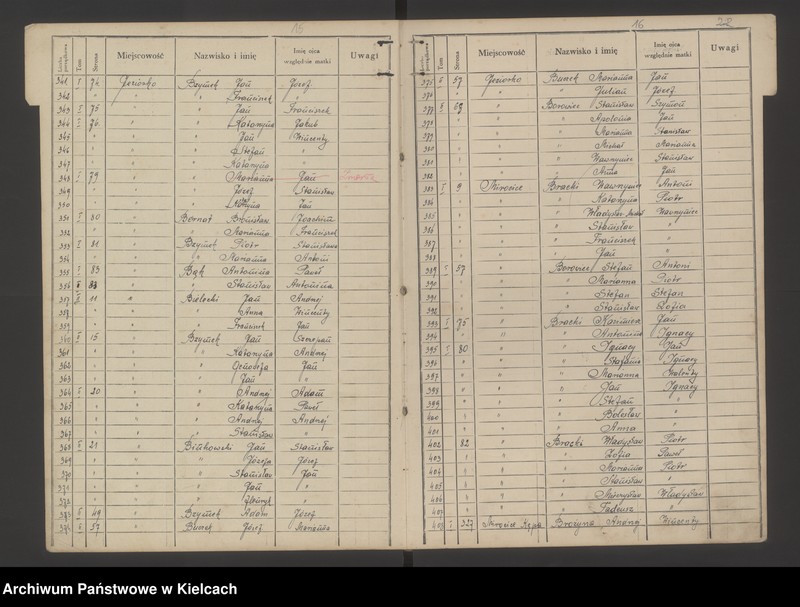 16
Liczba porządkowa Tom Strona Miejscowość Nazwisko i imię Imię ojca względnie matki Uwagi
341 I 74 Jeziorko Bzymek Jan Józef
342 " " " Franciszek "
343 I 75 " " Jan Franciszek
344 I 76 " " Katarzyna Jakub
345 " " " Jan Wincenty
346 " " " Stefan "
347 " " " Katarzyna "
348 I 79 " " Marianna Jan
349 " " " Józef Stanisław
350 " " " Jan
351 I 80 " Bernat Bronisław Joachim
352 " " " Marianna Franciszek
353 I 81 " Bzymek Piotr Stanisława
354 " " " Marianna Antoni
355 I 83 " Bąk Antonina Paweł
356 " " Stanisław Antonina
357 II 11 " Bielecki Jan Andrzej
358 " " " Anna Wincenty
359 " " " Franciszek Jan
360 II 15 " Bzymek Jan Szczepan
361 " " " Katarzyna Andrzej
362 " " " Jan
363 " " " Jan "
364 II 20 " " Andrzej Adam
365 " " " Katarzyna Paweł
366 " " " Andrzej Andrzej
367 " " " Stanisław "
368 II 21 " Jan Stanisław
369 " " " Józefa Józef
370 " " " Stanisław Jan
371 " " " Jan "
372 " " " Henryk "
373 II 49 " Bzymek Adam Józef
374 II 57 " Burek Józef Marianna
16 22
Liczba porządkowa Tom Strona Miejscowość Nazwisko i imię Imię ojca względnie matki Uwagi
375 II 57 Jeziorko Burek Marianna Jan
376 " " " Julian Józef
377 II 69 " Borowiec Stanisław Szymon
378 " " " Apolonia Jan
379 " " " Marianna Stanisław
380 " " " Michał Marianna
381 " " " Wawrzyniec Stanisław
382 " " " Anna Jan
383 I 9 Mirocice Bracki Wawrzyniec Antoni
384 " " " Katarzyna Piotr
385 " " " Władysław Wawrzyniec
386 " " " Stanisław "
387 " " " Franciszek "
388 " " " Jan "
389 I 57 " Borowiec Stefan Antoni
390 " " " Marianna Piotr
391 " " " Stefan Stefan
392 " " " Stanisław Zofia
393 I 75 " Bracki Kazimierz Jan
394 " " " Antonina Ignacy
395 I 80 " " Ignacy Jan
396 " " " Stefania Ignacy
397 " " " Marianna Walenty
398 " " " Jan Ignacy
399 " " " Stefan "
400 " " " Bolesław "
401 " " " Anna "
402 82 " Bracki Władysław Piotr
403 " " " Zofia Paweł
404 " " " Marianna Piotr
405 " " " Stanisław "
406 " " " Władysław
407 " " " Tadeusz "
408 I 327 Mirocice Kępa Brożyna Andrzej Wincenty
Archiwum Państwowe w Kielcach